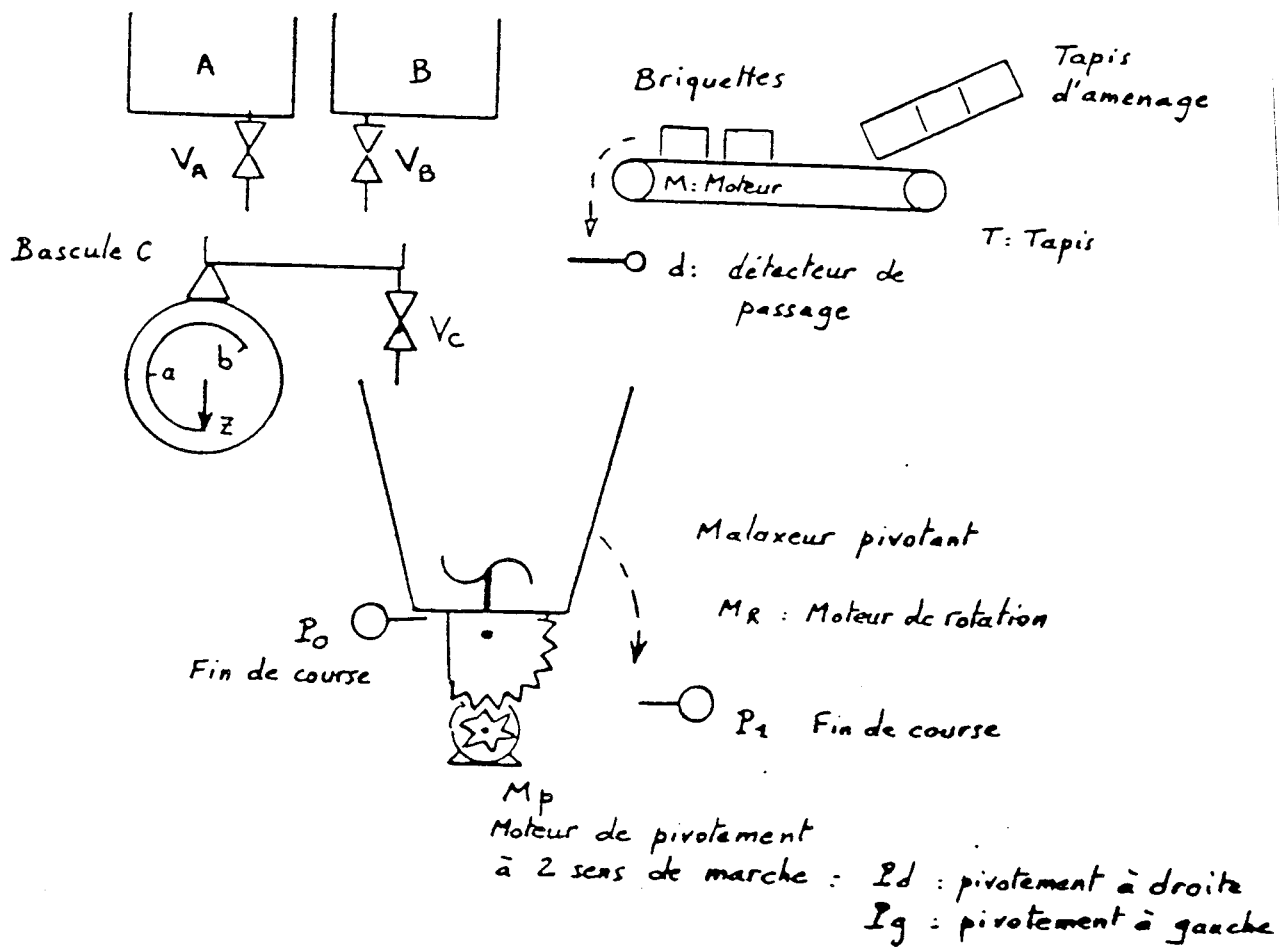 A
B
V_A
V_B
Briquettes
Tapis
d'amenage
M: Moteur
T: Tapis
Bascule C
d: détecteur de
passage
V_C
a
b
z
Malaxeur pivotant
M_R : Moteur de rotation
P_0
Fin de course
P_1 Fin de course
Mp
Moteur de pivotement
à 2 sens de marche : Pd : pivotement à droite
Pg : pivotement à gauche